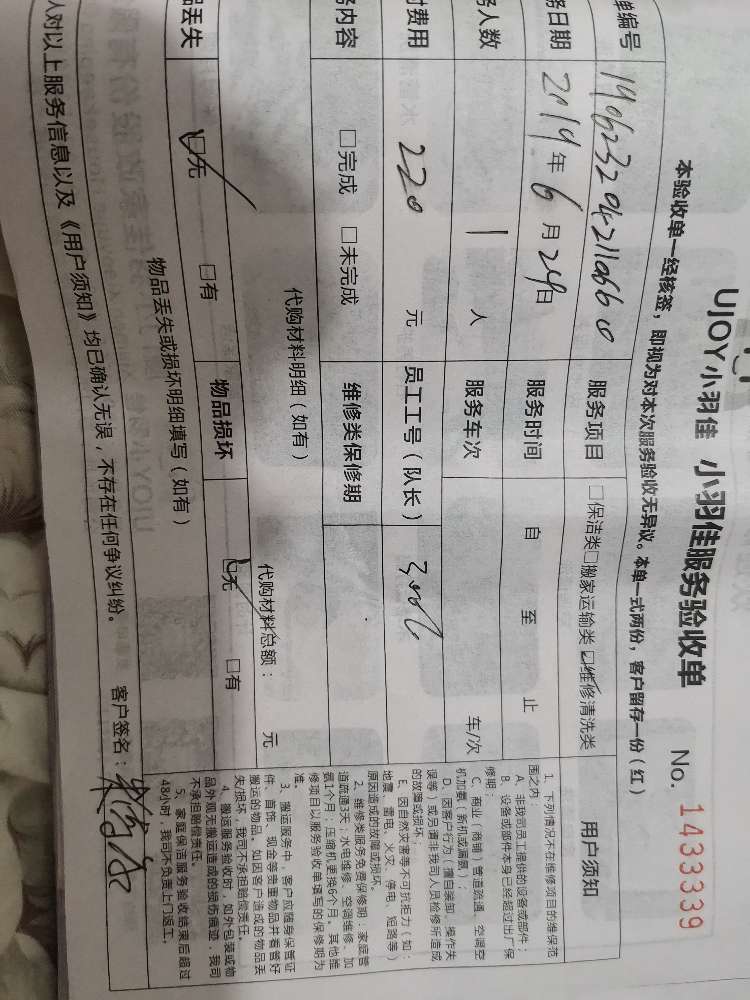 UJOY小羽佳 小羽佳服务验收单
No. 1433339
本验收单一经核签，即视为对本次服务验收无异议。本单一式两份，客户留存一份（红）
单编号
服务项目 □保洁类□搬家运输类☑维修清洗类
务日期 2019年6月24日 服务时间 自 至 止
务人数 1人 服务车次 车/次
付费用 220 元 员工工号（队长）
务内容 □完成 □未完成 维修类保修期
代购材料明细（如有） 代购材料总额： 元
品丢失 ☑无 □有 物品损坏 ☑无 □有
物品丢失或损坏明细填写（如有）
人对以上服务信息以及《用户须知》均已确认无误，不存在任何争议纠纷。 客户签名：
用户须知
1. 下列情况不在维修项目的维保范
围之内：
A、非我司员工提供的设备或部件；
B、设备或部件本身已经超过出厂保
修期；
C、商业（商铺）管道疏通、空调空
机加氨（新机或漏氨）；
D、因客户行为（擅自装卸、操作失
误等）或后请非我司人员检修所造成
的故障或损坏；
E、因自然灾害等不可抗拒力（如：
地震、雷电、火灾、停电、短路等）
原因造成的故障或损坏。
2、维修类服务免费保修期：家庭管
道疏通3天；水电维修、空调维修、加
氨1个月；压缩机更换6个月。其他维
修项目以服务验收单填写的保修期为
准。
3、搬运服务中，客户应随身保管证
件、首饰、现金等贵重物品并看管好
搬运的物品。如因客户造成的物品丢
失/损坏，我司不承担赔偿责任。
4、搬运服务验收时，如外包装或物
品外观无搬运造成的损伤痕迹，我司
不承担赔偿责任。
5、家庭保洁服务验收结束后超过
48小时，我司不负责上门返工。